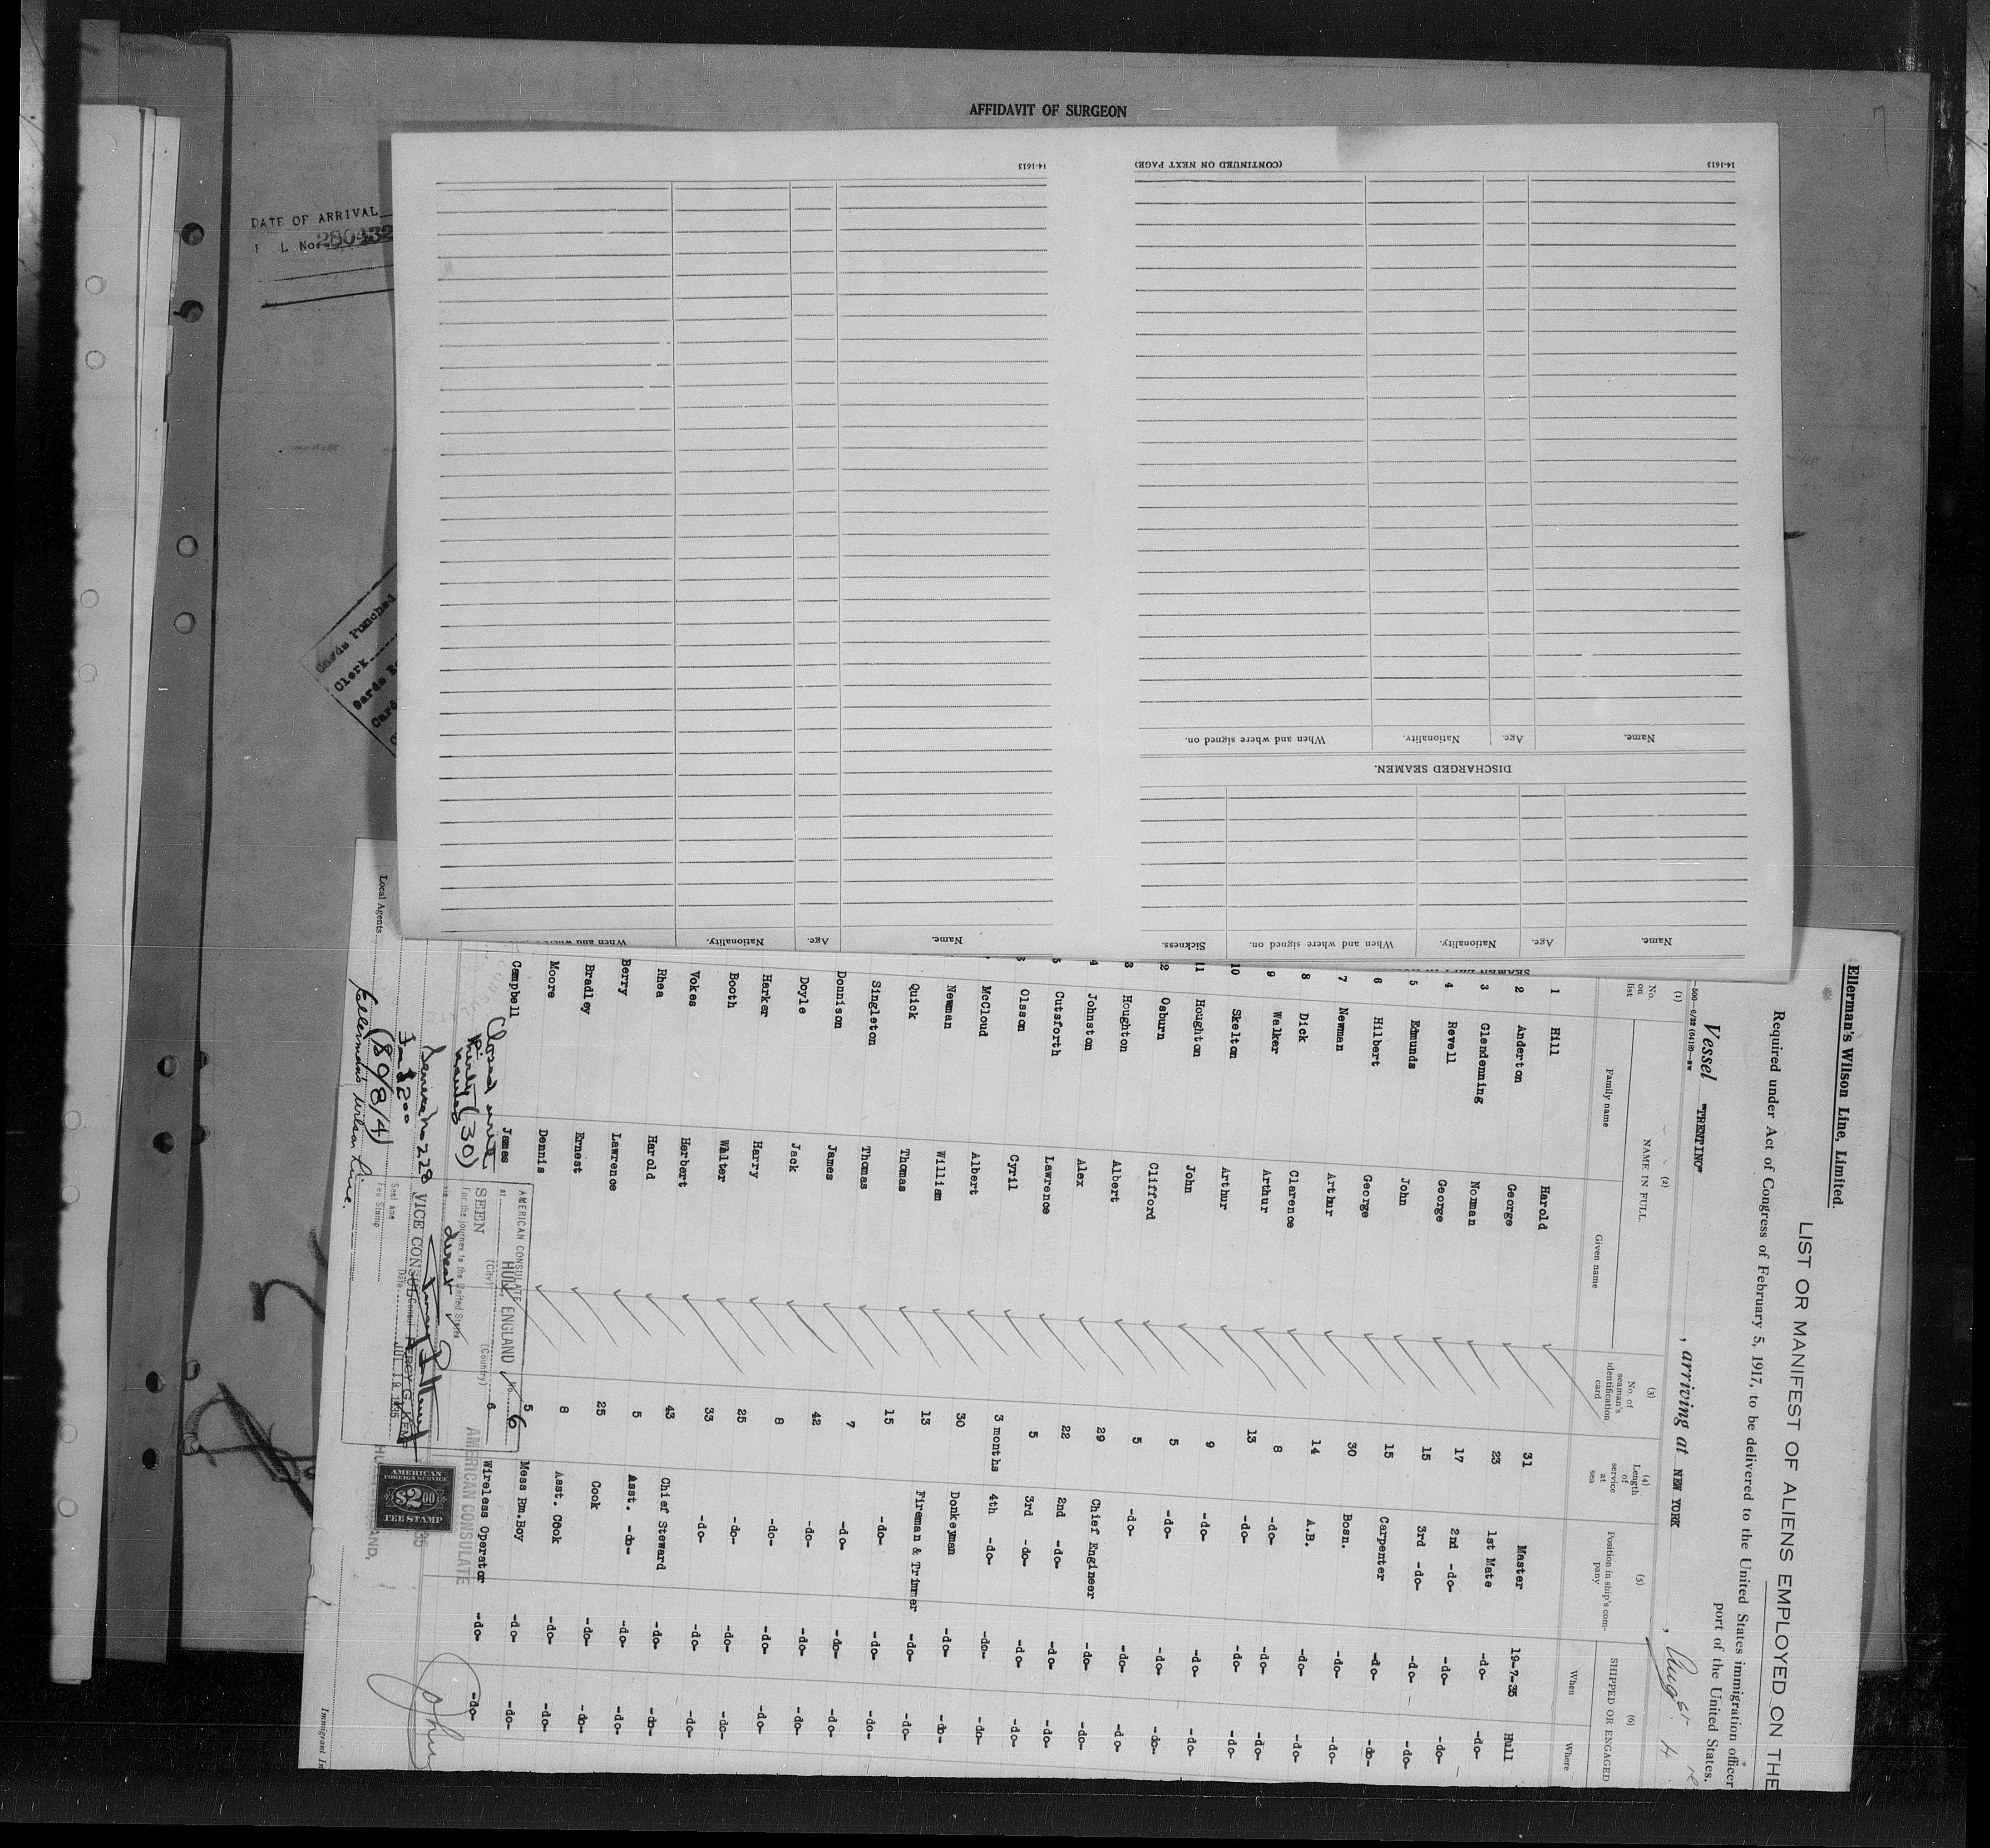 AFFIDAVIT OF SURGEON
DATE OF ARRIVAL
L No. 280432
Cards Punched
Clerk
14-1613
(CONTINUED ON NEXT PAGE)
14-1613
Name. Age. Nationality. When and where signed on.
DISCHARGED SEAMEN.
Name. Age. Nationality. When and where signed on. Sickness.
Name. Age. Nationality. When and where
Ellerman's Wilson Line, Limited.
LIST OR MANIFEST OF ALIENS EMPLOYED ON THE
Required under Act of Congress of February 5, 1917, to be delivered to the United States immigration officer
port of the United States.
Vessel "TRENTINO", arriving at NEW YORK, August 4
(1) (2) (3) (4) (5) (6)
No. on list NAME IN FULL No. of seaman's identification card Length of service at sea Position in ship's company SHIPPED OR ENGAGED
Family name Given name When Where
1 Hill Harold 31 Master 19-7-35 Hull
2 Anderton George 23 1st Mate -do- -do-
3 Glendenning Norman 17 2nd -do- -do- -do-
4 Revell George 15 3rd -do- -do- -do-
5 Edmunds John 15 Carpenter -do- -do-
6 Hilbert George 30 Bosn. -do- -do-
7 Newman Arthur 14 A.B. -do- -do-
8 Dick Clarence 8 -do- -do- -do-
9 Walker Arthur 13 -do- -do- -do-
10 Skelton Arthur 9 -do- -do- -do-
11 Houghton John 5 -do- -do- -do-
12 Osburn Clifford 5 -do- -do- -do-
3 Houghton Albert 29 Chief Engineer -do- -do-
4 Johnston Alex 22 2nd -do- -do- -do-
5 Cutsforth Lawrence 5 3rd -do- -do- -do-
Olsson Cyril 3 months 4th -do- -do- -do-
McCloud Albert 30 Donkeyman -do- -do-
Newman William 13 Fireman & Trimmer -do- -do-
Quick Thomas 15 -do- -do- -do-
Singleton Thomas 7 -do- -do- -do-
Donnison James 42 -do- -do- -do-
Doyle Jack 8 -do- -do- -do-
Harker Harry 25 -do- -do- -do-
Booth Walter 33 -do- -do- -do-
Vokes Herbert 43 Chief Steward -do- -do-
Rhea Harold 5 Asst. -do- -do- -do-
Berry Lawrence 25 Cook -do- -do-
Bradley Ernest 8 Asst. Cook -do- -do-
Moore Dennis 5 Mess Rm.Boy -do- -do-
Campbell James 6 Wireless Operator -do- -do-
Closed with
thirty (30)
names
Service No 228
Fee $2.00
(8984)
Local Agents Ellerman's Wilson Line.
AMERICAN CONSULATE
at HULL, ENGLAND No. 6
(City) (Country)
SEEN
For the journey to the United States
direct
VICE CONSUL
PERCY G. KEMP
Date JUL 19 1935
Seal and
Fee Stamp
AMERICAN CONSULATE
AMERICAN
FOREIGN SERVICE
$2.00
FEE STAMP
John
Immigrant In